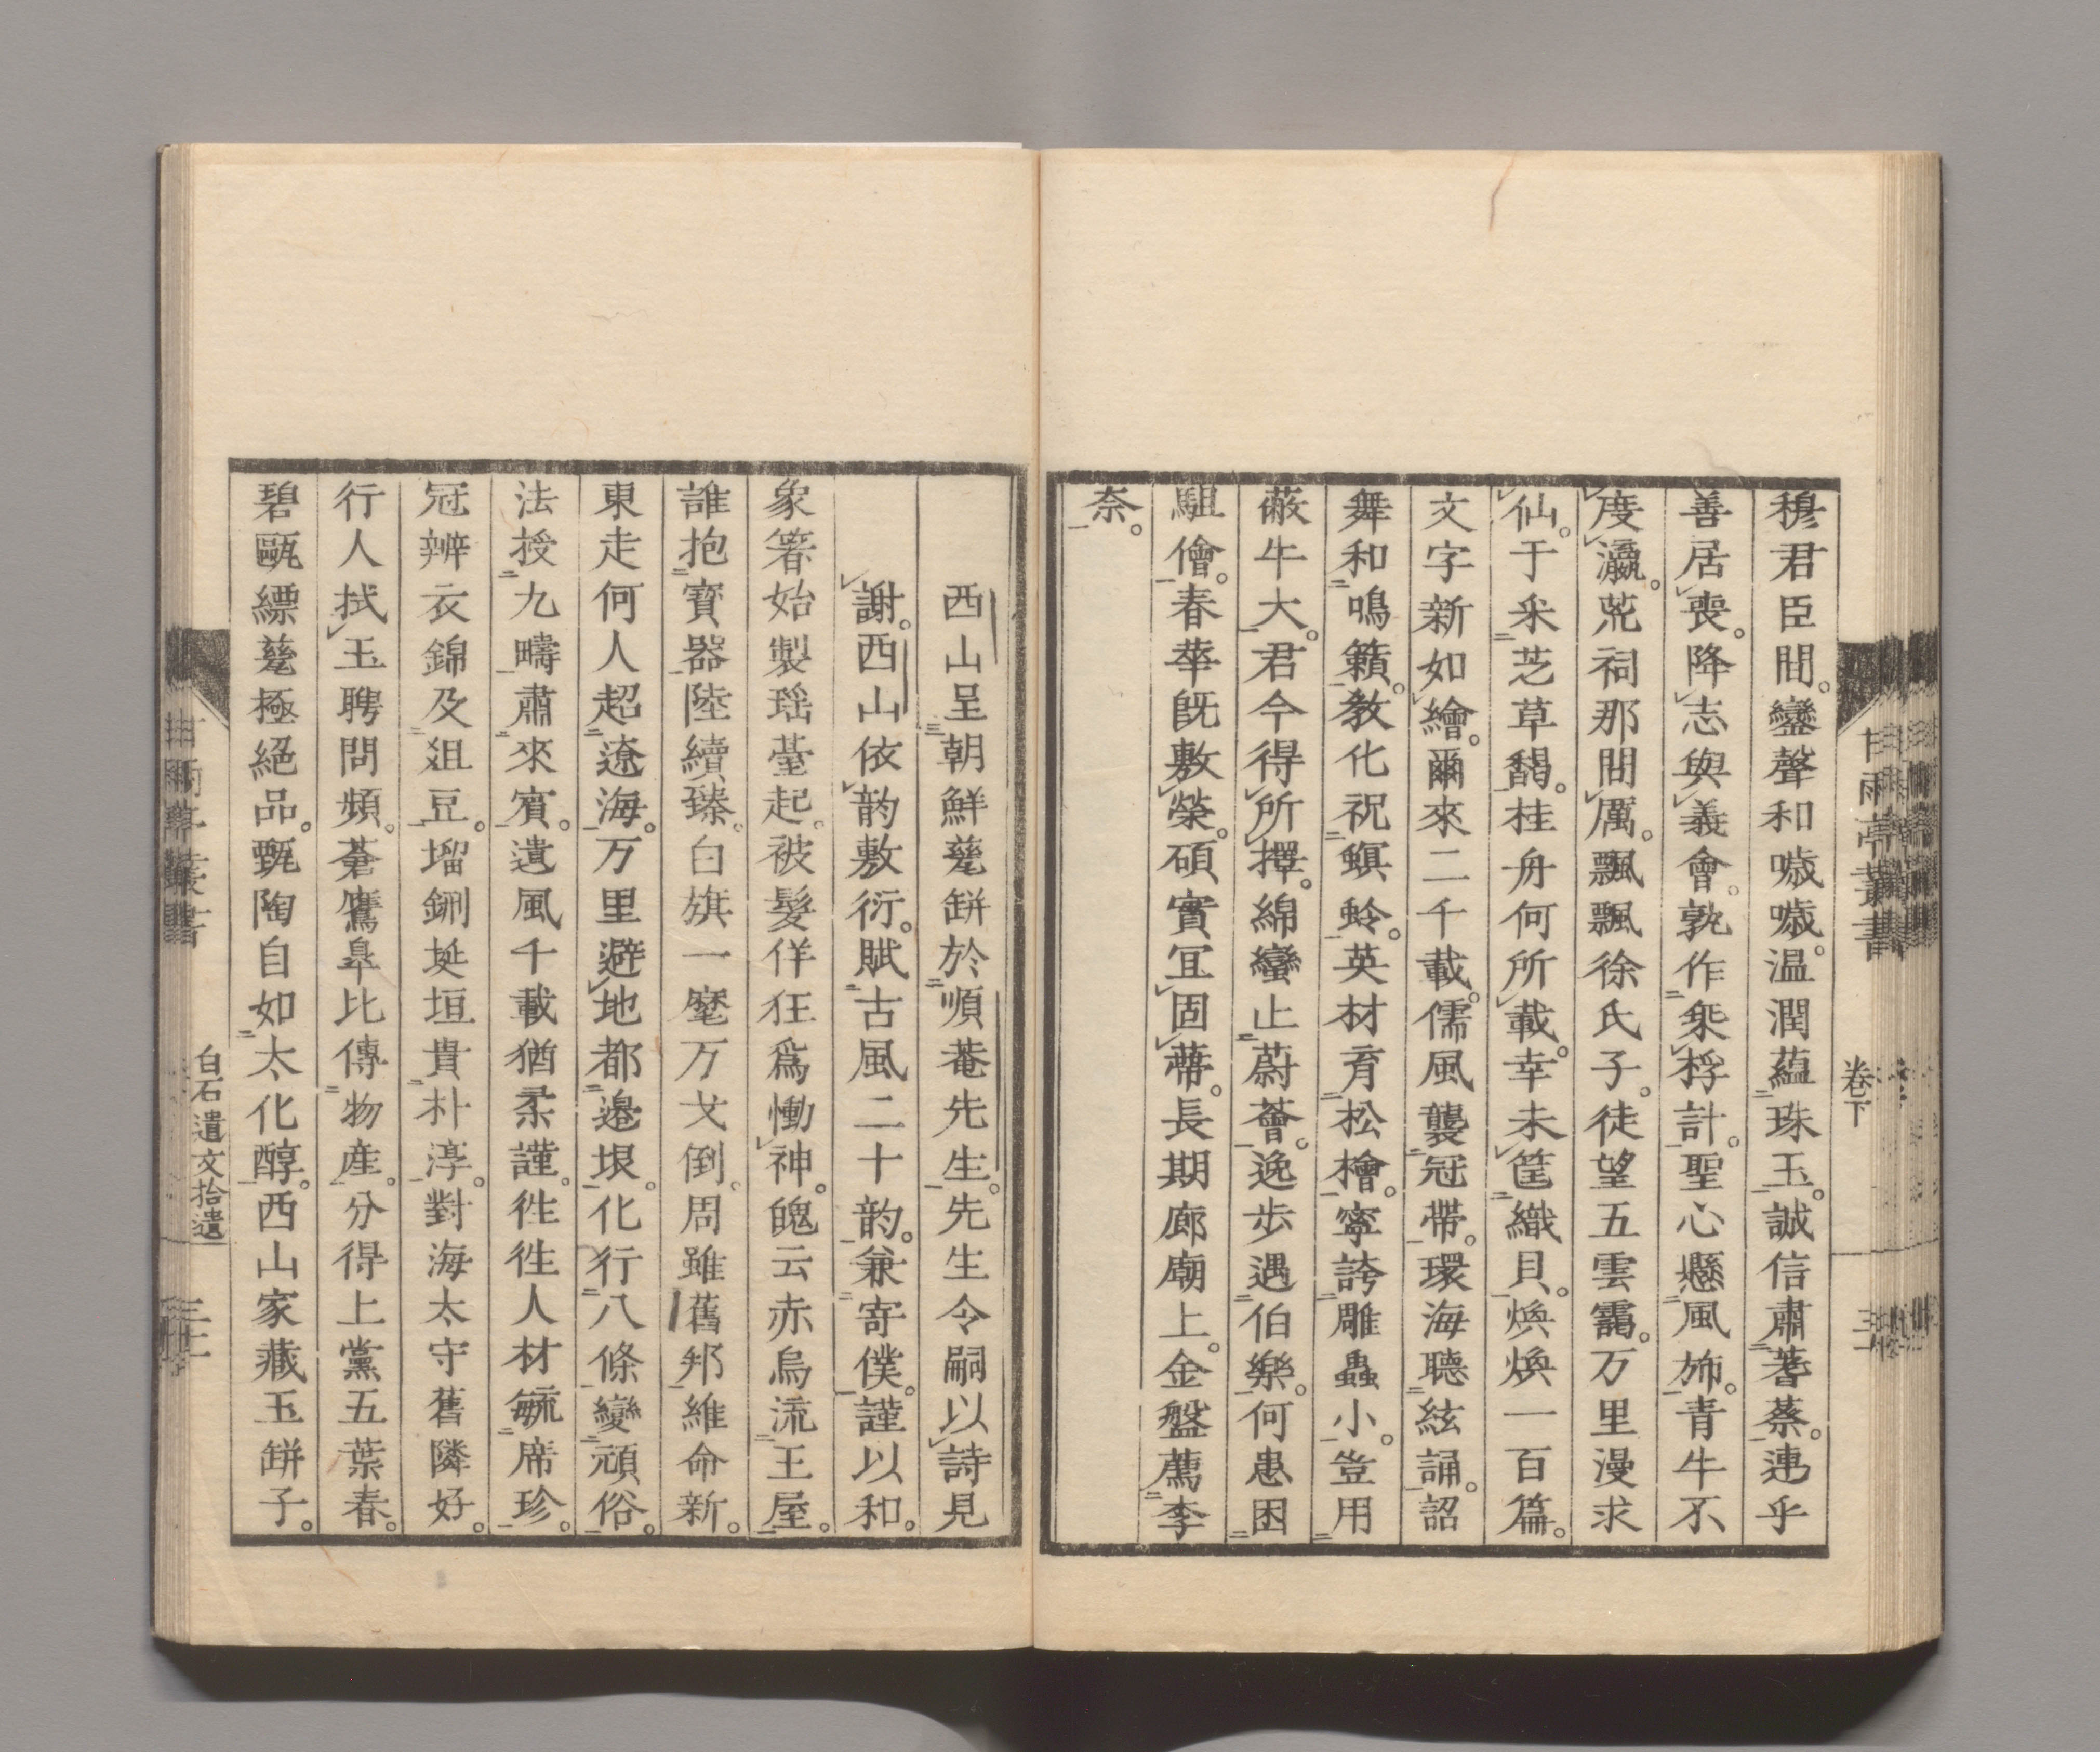 穆君臣間。鑾聲和噦噦。温潤蘊珠玉。誠信肅蓍蔡。連乎
善居喪。降志與義會。孰作乘桴計。聖心懸風斾。青牛不
度瀛。荒祠那問厲。飄飄徐氏子。徒望五雲靄。万里漫求
仙。于采芝草馤。桂舟何所載。幸未筐織貝。煥煥一百篇。
文字新如繪。爾來二千載。儒風襲冠帶。環海聴絃誦。詔
舞和鳴籟。敎化祝螟蛉。英材育松檜。寧誇雕蟲小。豈用
蔽牛大。君今得所擇。綿蠻止蔚薈。逸步遇伯樂。何患困
駔儈。春華旣敷榮。碩實宜固蔕。長期廊廟上。金盤薦李
奈。
甘雨亭叢書
卷下
西山呈朝鮮甆缾於順菴先生。先生令嗣以詩見
謝。西山依韵敷衍。賦古風二十韵。兼寄僕。謹以和。
象箸始製瑶臺起。被髮佯狂爲慟神。醜云赤烏流王屋。
誰抱寳器陸續臻。白旗一麾万戈倒。周雖舊邦維命新。
東走何人超遼海。万里避地都邊垠。化行八條變頑俗。
法授九疇肅來賓。遺風千載猶柔謹。徃徃人材毓席珍。
冠辨衣錦及爼豆。塯鉶埏垣貴朴淳。對海太守舊隣好。
行人拭玉聘問頻。蒼鷹皐比傳物産。分得上黨五葉春。
碧甌縹甆極絕品。甄陶自如太化醇。西山家藏玉缾子。
白石遺文拾遺